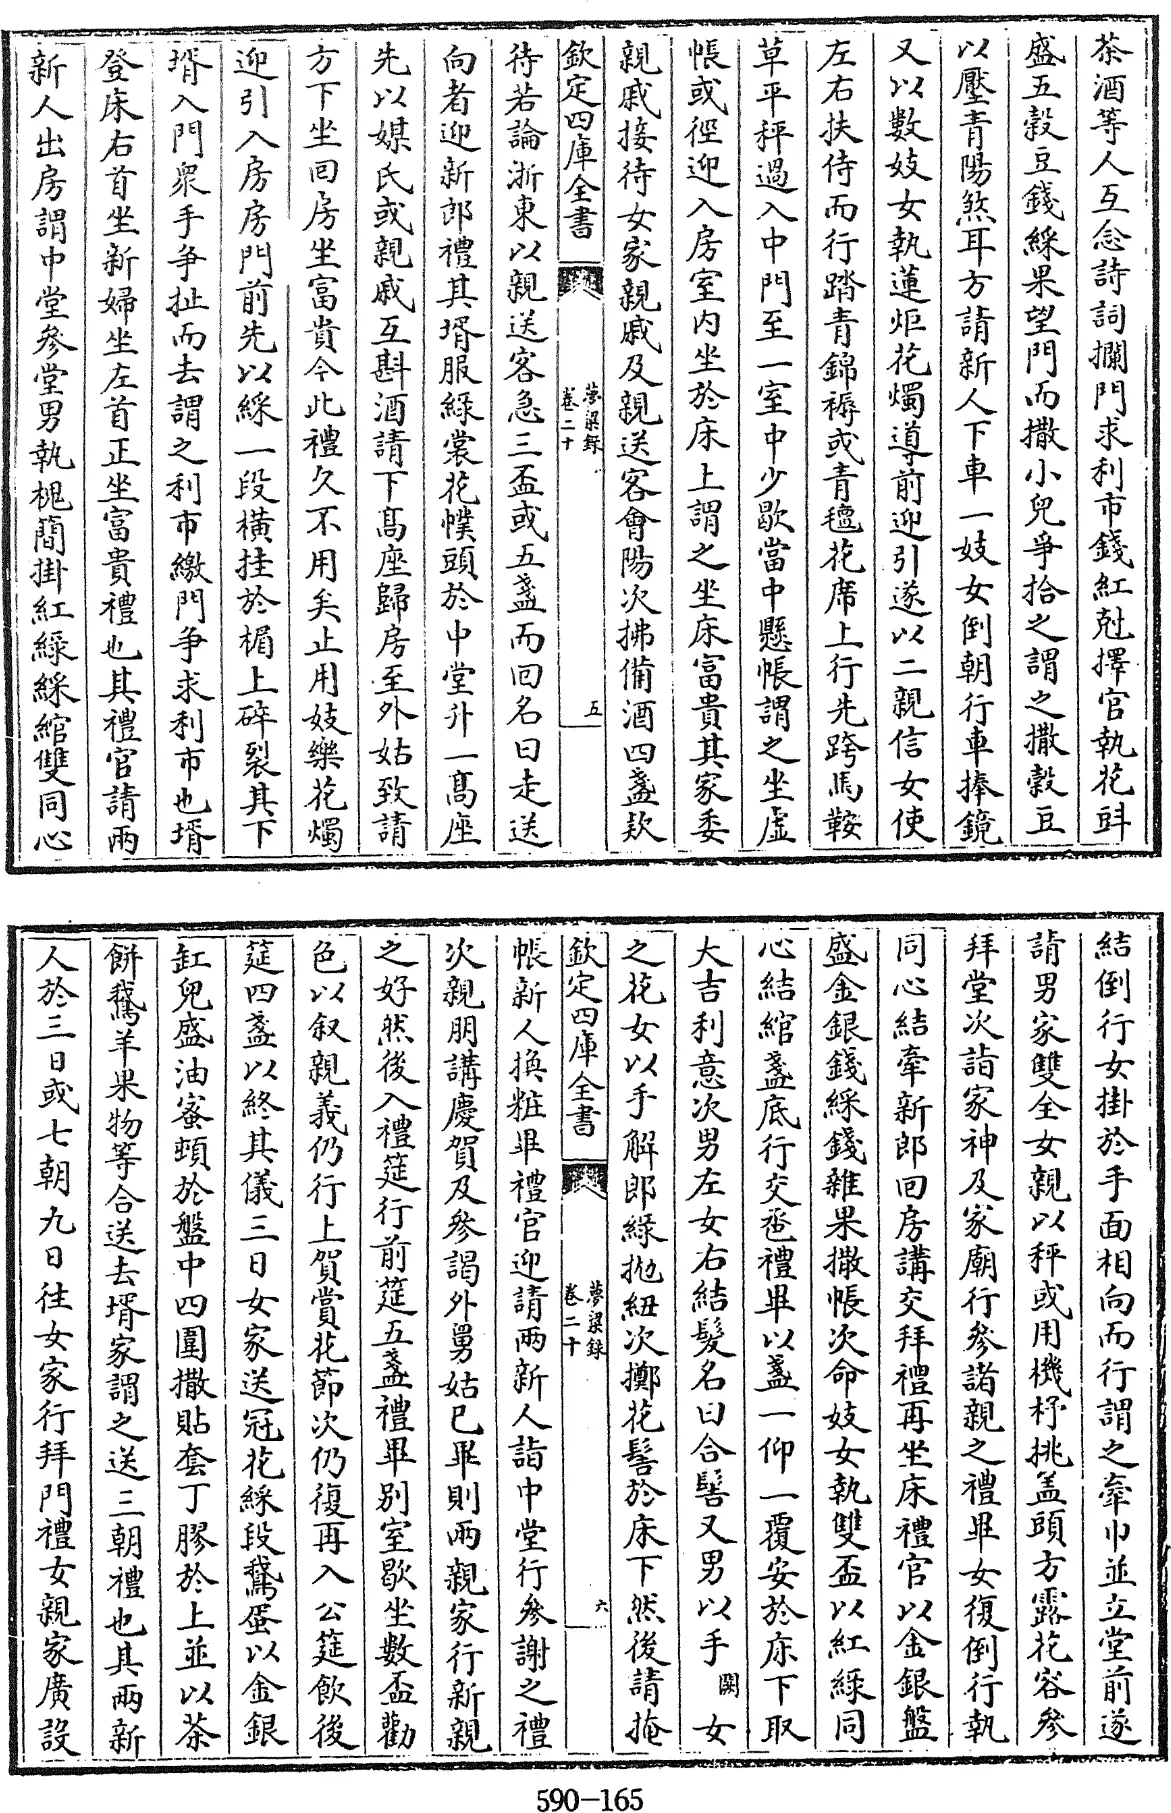 茶酒等人互念詩詞攔門求利市錢紅尅擇官執花㪷
盛五穀豆錢綵果望門而撒小兒爭拾之謂之撒穀豆
以壓青陽煞耳方請新人下車一妓女倒朝行車捧鏡
又以數妓女執蓮炬花燭導前迎引遂以二親信女使
左右扶侍而行踏青錦褥或青氊花席上行先跨馬鞍
草平秤過入中門至一室中少歇當中懸帳謂之坐虛
帳或徑迎入房室内坐於床上謂之坐床富貴其家委
親戚接待女家親戚及親送客會陽次拂備酒四盞欵
欽定四庫全書
夢粱錄
卷二十
五
待若論浙東以親送客急三盃或五盞而回名曰走送
向者迎新郎禮其壻服綠裳花幞頭於中堂升一高座
先以媒氏或親戚互斟酒請下高座歸房至外姑致請
方下坐回房坐富貴今此禮久不用矣止用妓樂花燭
迎引入房房門前先以綵一段橫挂於楣上碎裂其下
壻入門衆手争扯而去謂之利市繳門争求利市也壻
登床右首坐新婦坐左首正坐富貴禮也其禮官請兩
新人出房謂中堂參堂男執槐簡掛紅綠綵綰雙同心
結倒行女掛於手面相向而行謂之牽巾並立堂前遂
請男家雙全女親以秤或用機杼挑盖頭方露花容參
拜堂次詣家神及家廟行參諸親之禮畢女復倒行執
同心結牽新郎回房講交拜禮再坐床禮官以金銀盤
盛金銀錢綵錢雜果撒帳次命妓女執雙盃以紅綠同
心結綰盞底行交卺禮畢以盞一仰一覆安於床下取
大吉利意次男左女右結髮名曰合髻又男以手闕女
之花女以手解郎綠抛紐次擲花髻於床下然後請掩
欽定四庫全書
夢粱錄
卷二十
六
帳新人換粧畢禮官迎請兩新人詣中堂行參謝之禮
次親朋講慶賀及參謁外舅姑已畢則兩親家行新親
之好然後入禮筵行前筵五盞禮畢别室歇坐數盃勸
色以叙親義仍行上賀賞花節次仍復再入公筵飲後
筵四盞以終其儀三日女家送冠花綵段鵞蛋以金銀
缸兒盛油蜜頓於盤中四圍撒貼套丁膠於上並以茶
餅鵞羊果物等合送去壻家謂之送三朝禮也其兩新
人於三日或七朝九日往女家行拜門禮女親家廣設
590-165